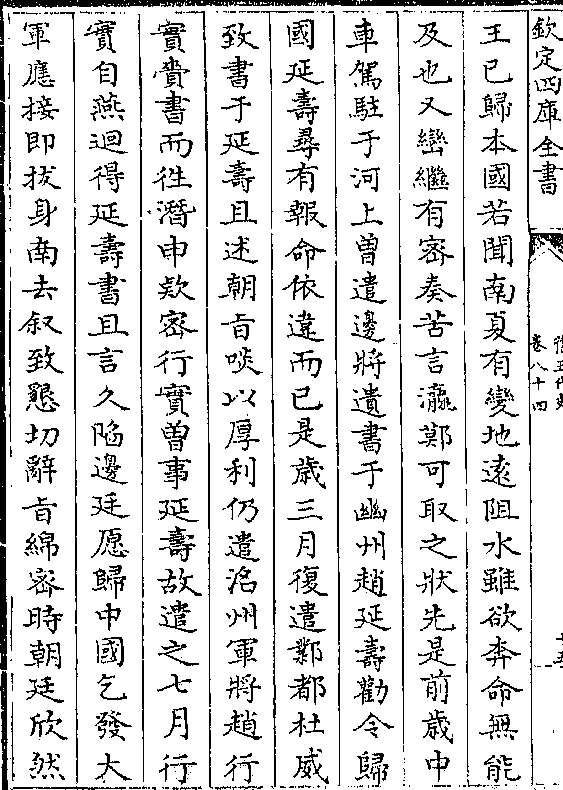 欽定四庫全書
舊五代史
卷八十四
王已歸本國若聞南夏有變地遠阻水雖欲奔命無能
及也又巒繼有密奏苦言瀛鄚可取之狀先是前歲中
車駕駐于河上曽遣邊將遺書于幽州趙延壽勸令歸
國延壽尋有報命依違而已是歲三月復遣鄴都杜威
致書于延壽且述朝㫖啖以厚利仍遣洺州軍將趙行
實賫書而徃濳申欵密行實曽事延壽故遣之七月行
實自燕迴得延壽書且言久陷邊廷愿歸中國乞發大
軍應接即拔身南去叙致懇切辭㫖綿密時朝廷欣然